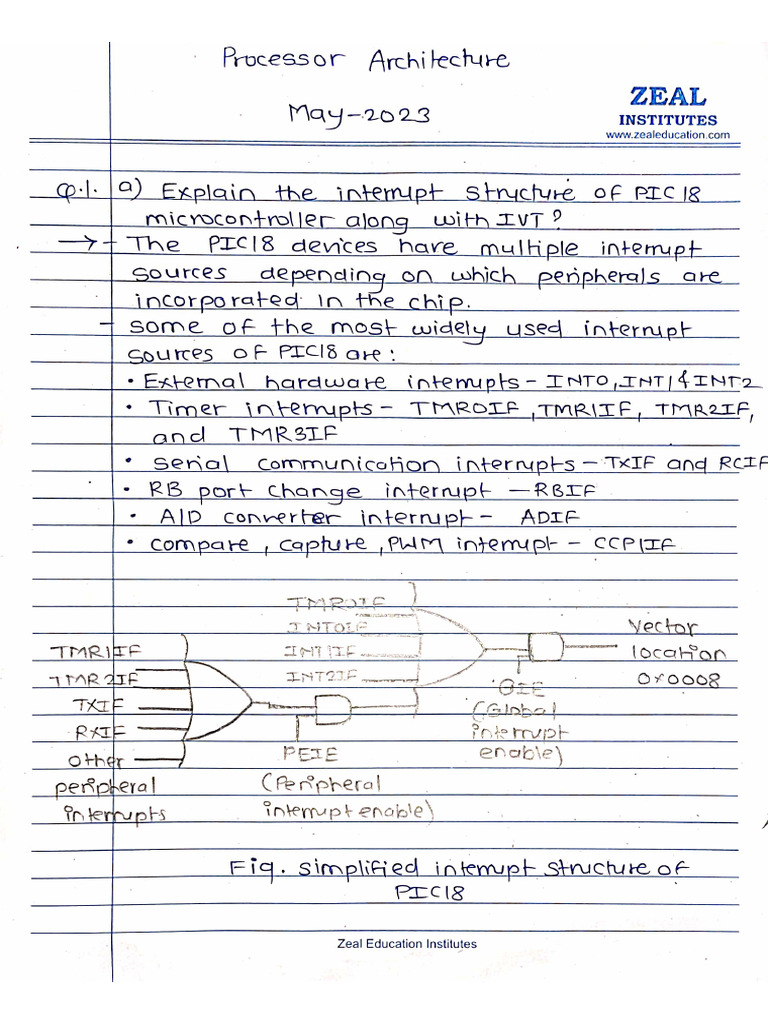 Processor Architecture
ZEAL
INSTITUTES
www.zealeducation.com
May-2023
Q.1. a) Explain the interrupt structure of PIC18
microcontroller along with IVT?
→ - The PIC18 devices have multiple interrupt
sources depending on which peripherals are
incorporated in the chip.
- some of the most widely used interrupt
sources of PIC18 are:
• External hardware interrupts - INT0, INT1 & INT2
• Timer interrupts - TMR0IF, TMR1IF, TMR2IF,
and TMR3IF
• serial communication interrupts - TXIF and RCIF
• RB port change interrupt - RBIF
• A/D converter interrupt - ADIF
• compare, capture, PWM interrupt - CCP1IF
TMR0IF
INT0IF
INT1IF
INT2IF
Vector
location
0x0008
TMR1IF
TMR2IF
TXIF
RXIF
other
peripheral
interrupts
PEIE
(Peripheral
interrupt enable)
GIE
(Global
interrupt
enable)
Fig. simplified interrupt structure of
PIC18
Zeal Education Institutes